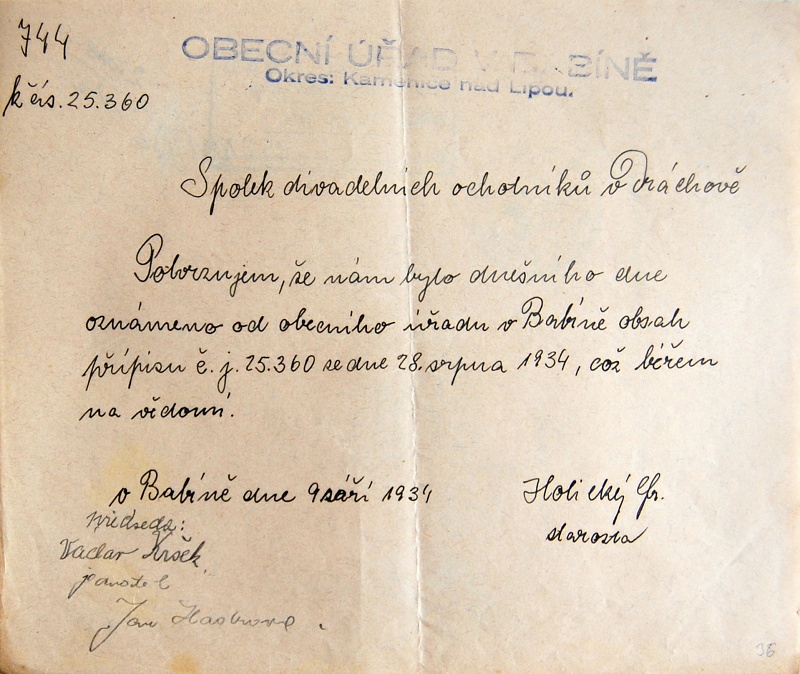 744
OBECNÍ ÚŘAD V BABÍNĚ
Okres: Kamenice nad Lipou.
k čís. 25.360
Spolek divadelních ochotníků v Dráchově
Potvrzujem, že nám bylo dnešního dne
oznámeno od obecního úřadu v Babíně obsah
přípisu č. j. 25.360 se dne 28. srpna 1934, což béřem
na vědomí.
v Babíně dne 9 září 1934
Holický Fr.
starosta
předseda:
Václav Kršek
Jan
36